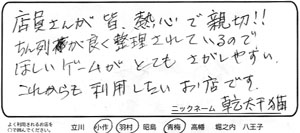 店員さんが皆、熱心で親切!!
ちん列が良く整理されているので
ほしいゲームがとてもさがしやすい。
これからも利用したいお店です。
ニックネーム 乾大猫
よく利用されるお店を
○で囲んでください。
立川 小作 羽村 昭島 青梅 高幡 堀之内 八王子